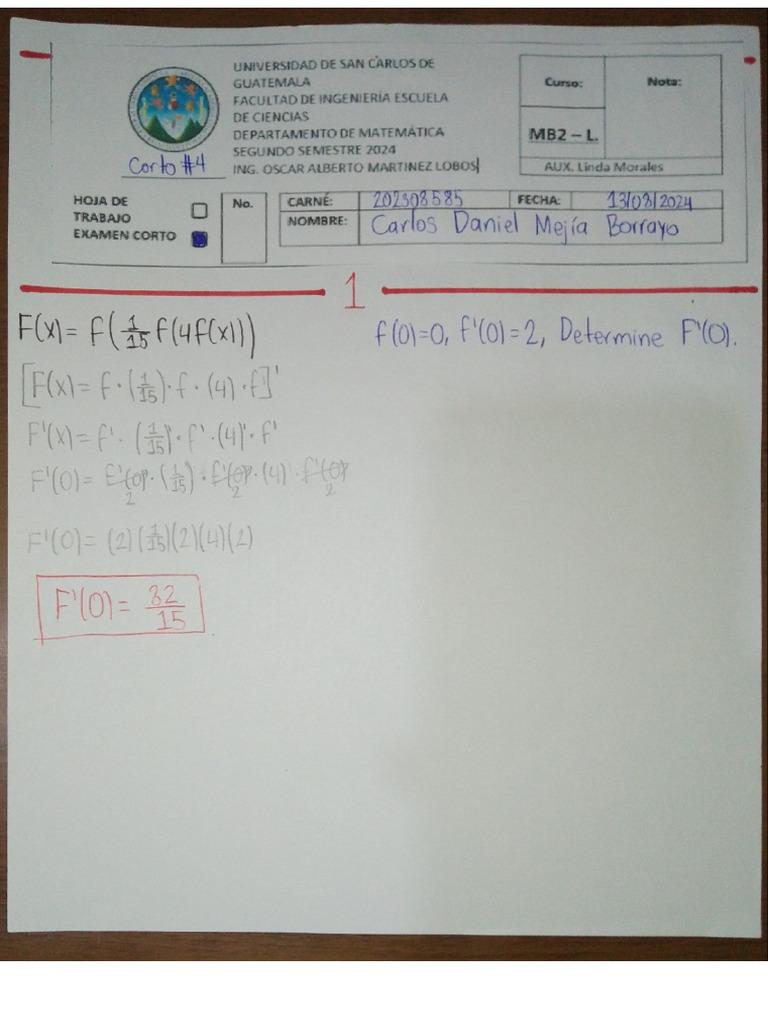 UNIVERSIDAD DE SAN CARLOS DE
GUATEMALA
FACULTAD DE INGENIERÍA ESCUELA
DE CIENCIAS
DEPARTAMENTO DE MATEMÁTICA
SEGUNDO SEMESTRE 2024
ING. OSCAR ALBERTO MARTINEZ LOBOS
Corto #4
Curso: Nota:
MB2 – L.
AUX. Linda Morales
HOJA DE
TRABAJO
EXAMEN CORTO
No.
CARNÉ: 202308585 FECHA: 13/08/2024
NOMBRE: Carlos Daniel Mejía Borrayo
1
F(x) = f(1/15 f(4f(x))) f(0)=0, f'(0)=2, Determine F'(0).
[F(x) = f·(1/15)·f·(4)·f]'
F'(x) = f'·(1/15)'·f'·(4)'·f'
F'(0) = f'(0)·(1/15)·f'(0)·(4)·f'(0)
2 2 2
F'(0) = (2)(1/15)(2)(4)(2)
F'(0) = 32/15